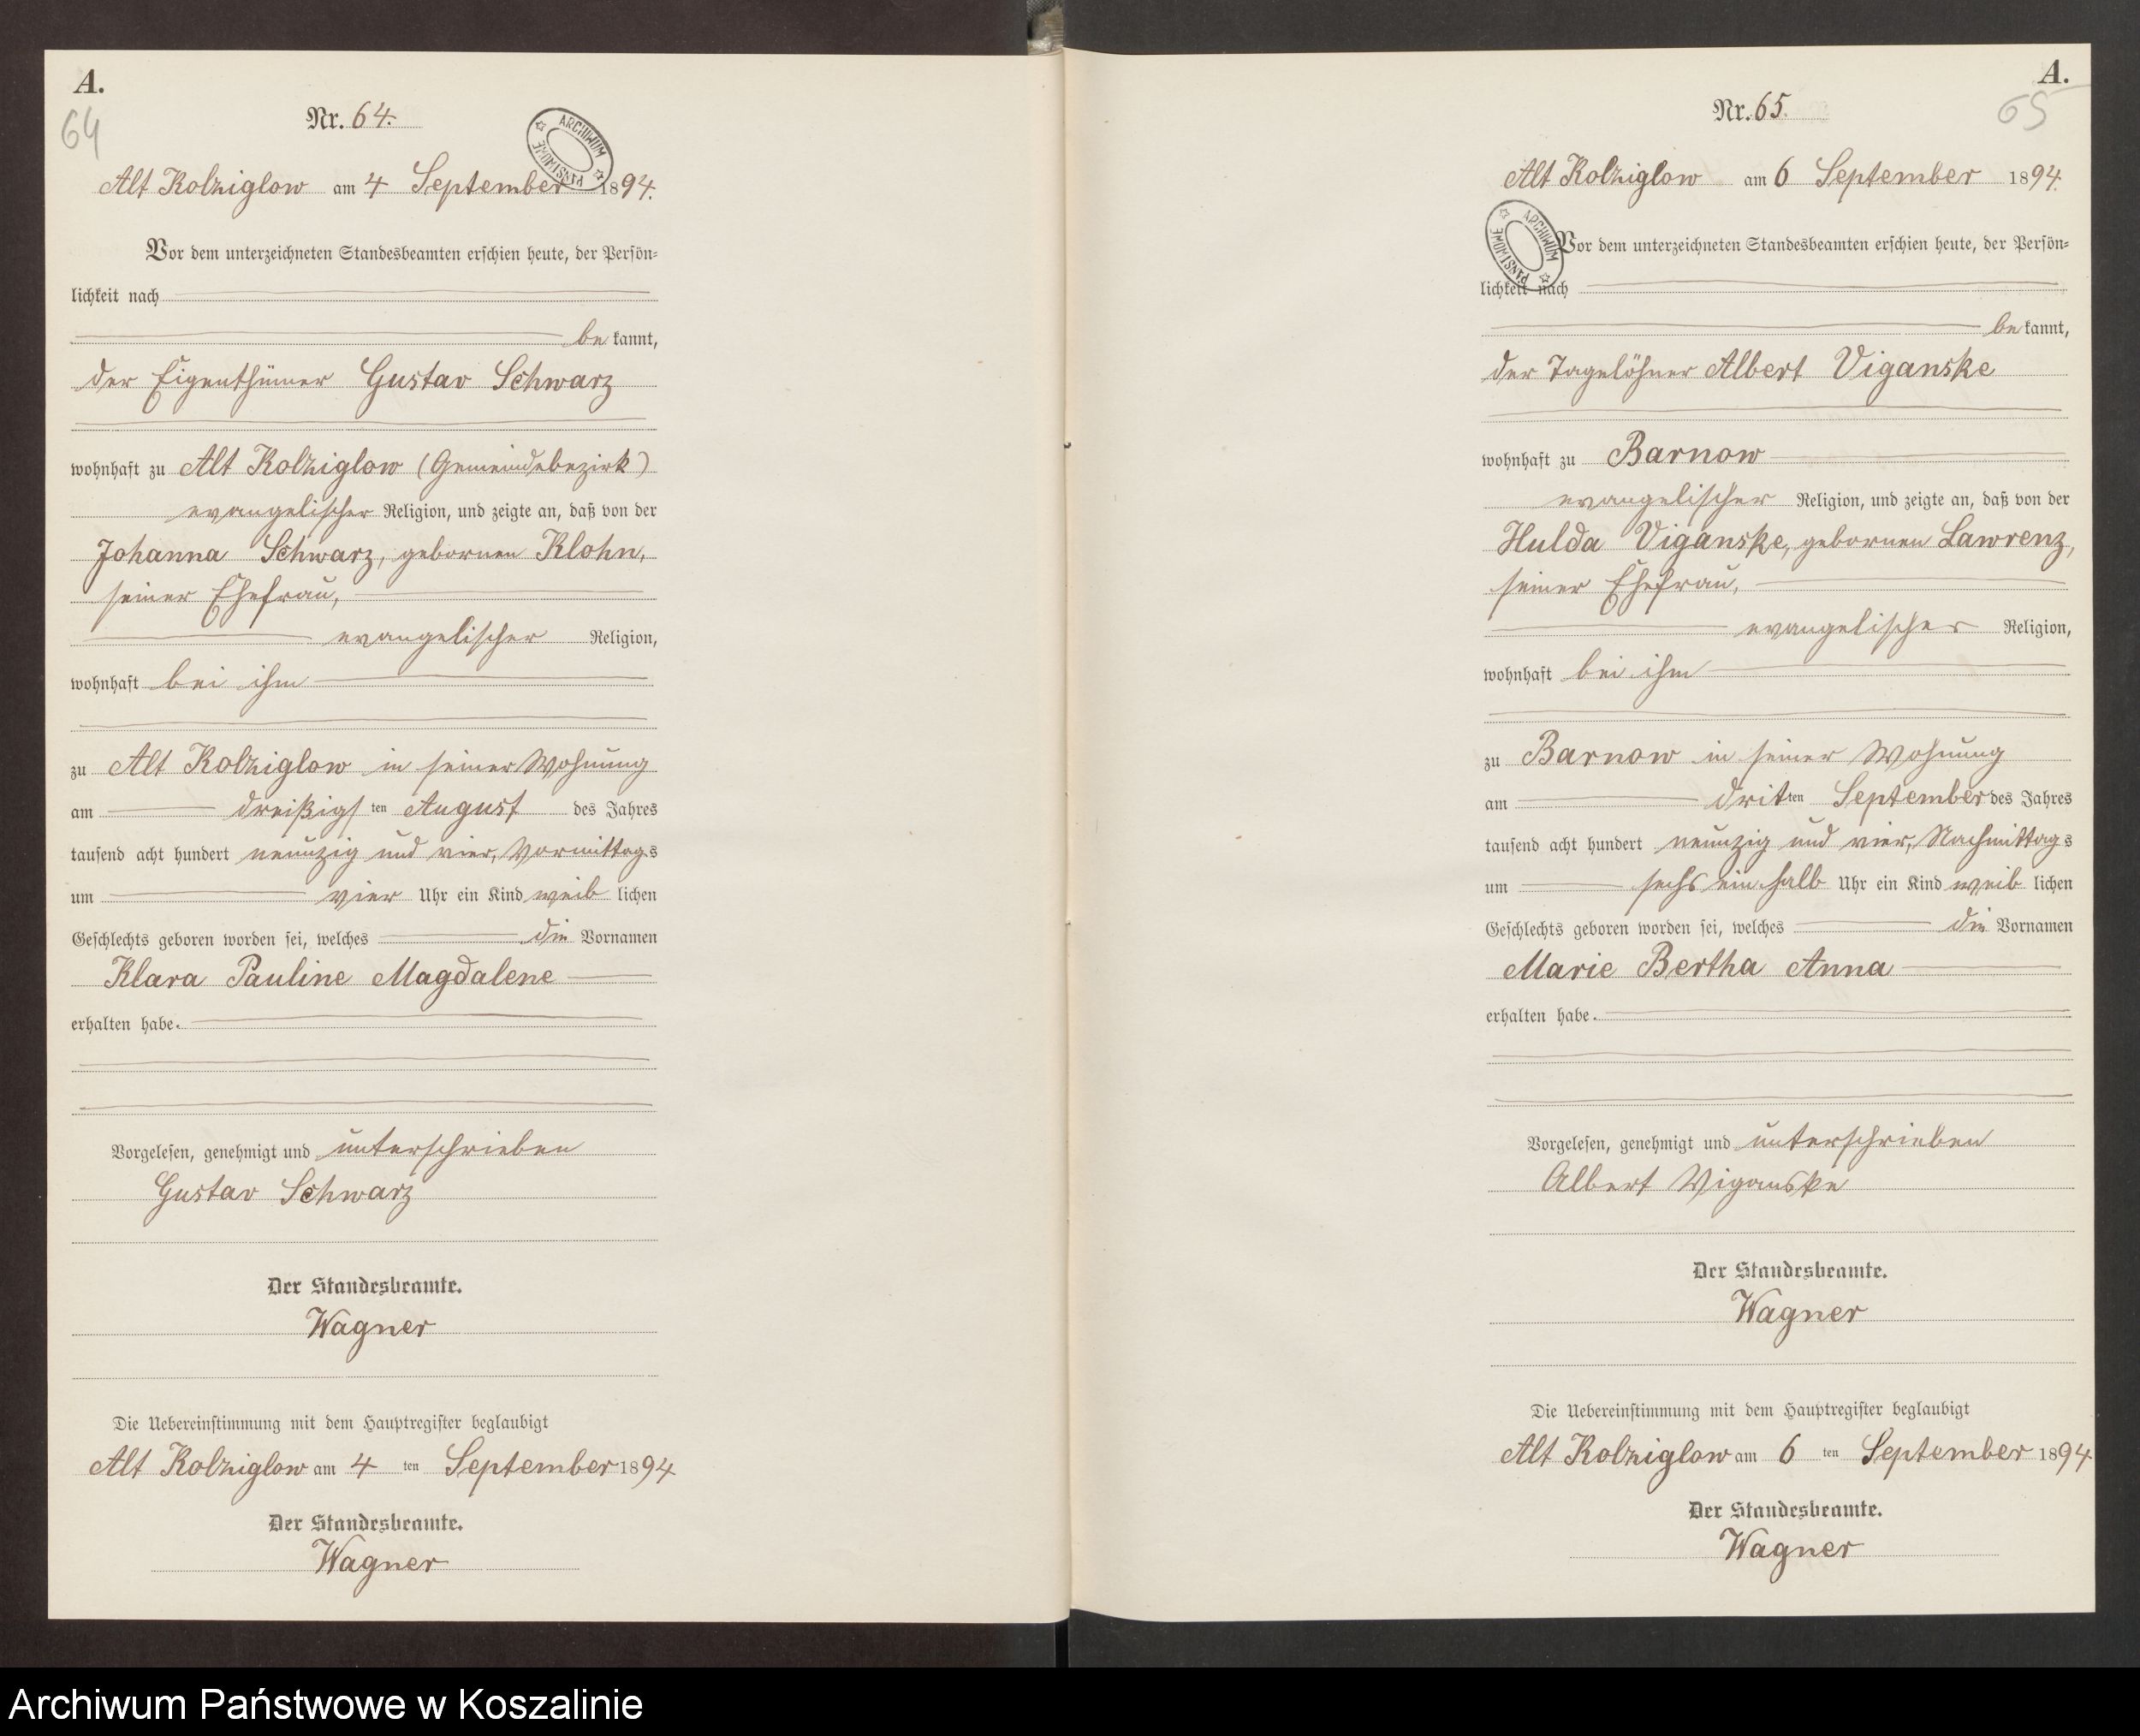 A.
64
Nr. 64.
ARCHIWUM PAŃSTWOWE
Alt Kolziglow am 4 September 1894.
Vor dem unterzeichneten Standesbeamten erschien heute, der Persön-
lichkeit nach
be kannt,
der Eigenthümer Gustav Schwarz
wohnhaft zu Alt Kolziglow (Gemeindebezirk)
evangelischer Religion, und zeigte an, daß von der
Johanna Schwarz, gebornen Klohn,
seiner Ehefrau,
evangelischer Religion,
wohnhaft bei ihm
zu Alt Kolziglow in seiner Wohnung
am dreißigsten August des Jahres
tausend acht hundert neunzig und vier, Vormittags
um vier Uhr ein Kind weib lichen
Geschlechts geboren worden sei, welches die Vornamen
Klara Pauline Magdalene
erhalten habe.
Vorgelesen, genehmigt und unterschrieben
Gustav Schwarz
Der Standesbeamte.
Wagner
Die Uebereinstimmung mit dem Hauptregister beglaubigt
Alt Kolziglow am 4 ten September 1894
Der Standesbeamte.
Wagner
A.
65
Nr. 65.
Alt Kolziglow am 6 September 1894.
ARCHIWUM PAŃSTWOWE
Vor dem unterzeichneten Standesbeamten erschien heute, der Persön-
lichkeit nach
be kannt,
der Tagelöhner Albert Viganske
wohnhaft zu Barnow
evangelischer Religion, und zeigte an, daß von der
Hulda Viganske, gebornen Lawrenz,
seiner Ehefrau,
evangelischer Religion,
wohnhaft bei ihm
zu Barnow in seiner Wohnung
am dritten September des Jahres
tausend acht hundert neunzig und vier, Nachmittags
um sechs ein halb Uhr ein Kind weib lichen
Geschlechts geboren worden sei, welches die Vornamen
Marie Bertha Anna
erhalten habe.
Vorgelesen, genehmigt und unterschrieben
Albert Viganske
Der Standesbeamte.
Wagner
Die Uebereinstimmung mit dem Hauptregister beglaubigt
Alt Kolziglow am 6 ten September 1894
Der Standesbeamte.
Wagner
Archiwum Państwowe w Koszalinie